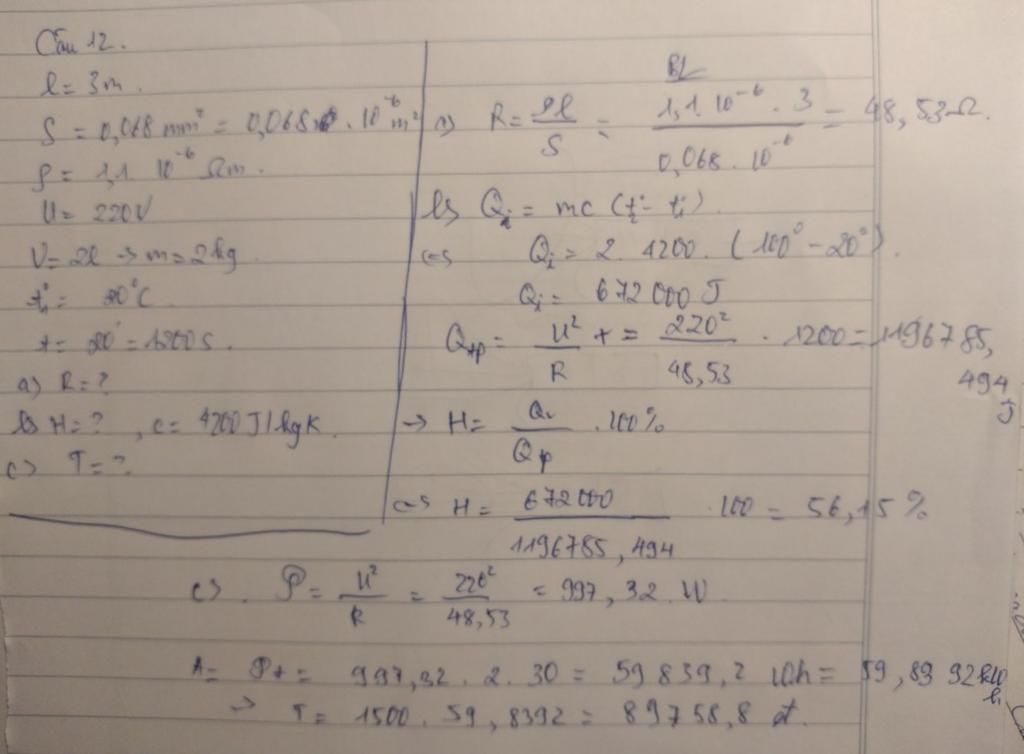 Câu 12.
l = 3m.
S = 0,068 mm² = 0,068 . 10⁻⁶ m²
ρ = 1,1 10⁻⁶ Ωm.
U = 220V
V = 2l → m = 2kg
t₁° = 20°C
t = 20' = 1200s.
a) R = ?
b) H = ? , c = 4200J/kgK.
c) T = ?
BL
a) R = ρl/S = 1,1 10⁻⁶ . 3 / 0,068 . 10⁻⁶ = 48,53Ω.
b) Qᵢ = mc (t₂° - t₁°)
<=> Qᵢ = 2. 4200. (100° - 20°).
Qᵢ = 672 000 J
Qtp = U²/R t = 220²/48,53 . 1200 = 1196785,
494
J
→ H = Qi/Qtp .100%
<=> H = 672000/1196785,494 .100 = 56,15%
c) P = U²/R = 220²/48,53 = 997,32 W
A = Pt = 997,32 . 2 . 30 = 59839,2 Wh = 59,8392 kW
h
→ T = 1500 . 59,8392 = 89758,8 đ.